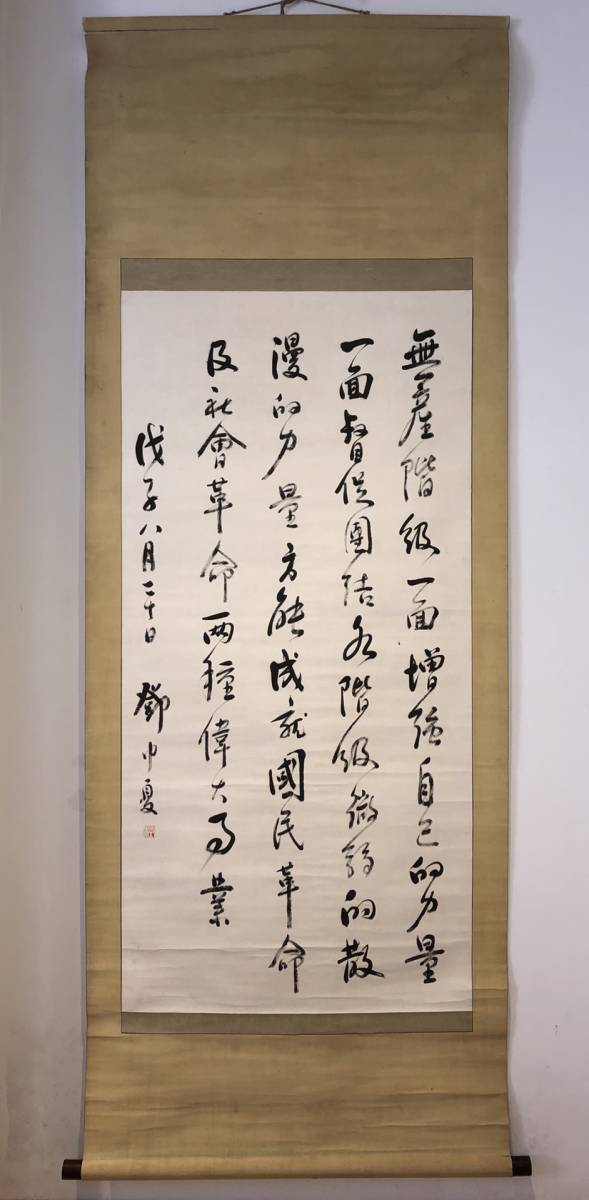 無產階級一面增強自己的力量
一面督促團結各階級微弱的散
漫的力量方能成就國民革命
及社會革命兩種偉大事業
戊子八月二十日 鄧中夏